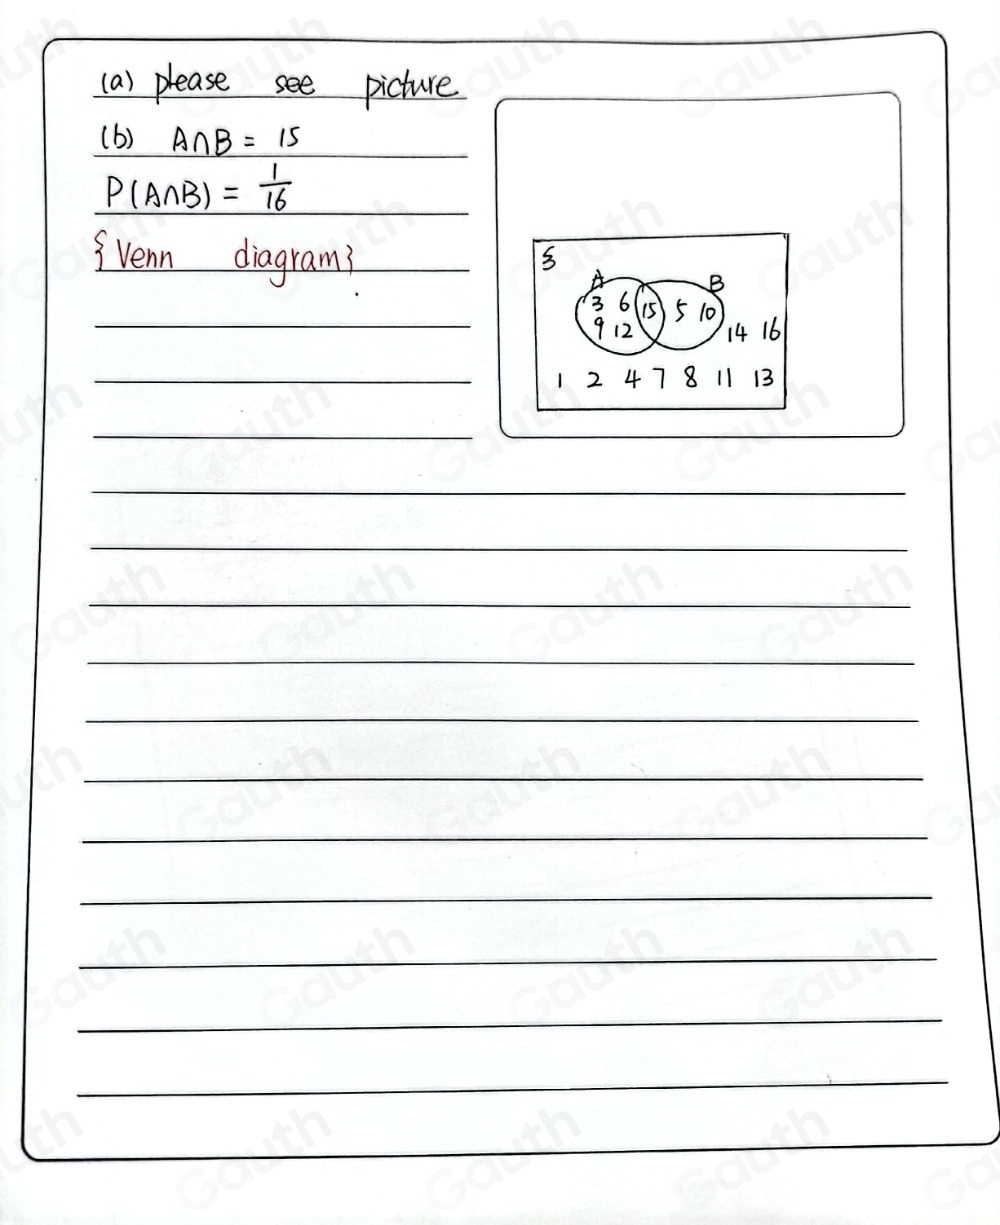 (a) please see picture
(b) A∩B = 15
P(A∩B) = 1/16
{Venn diagram}
ξ
A B
3 6 15 5 10
9 12 14 16
1 2 4 7 8 11 13
Gauth